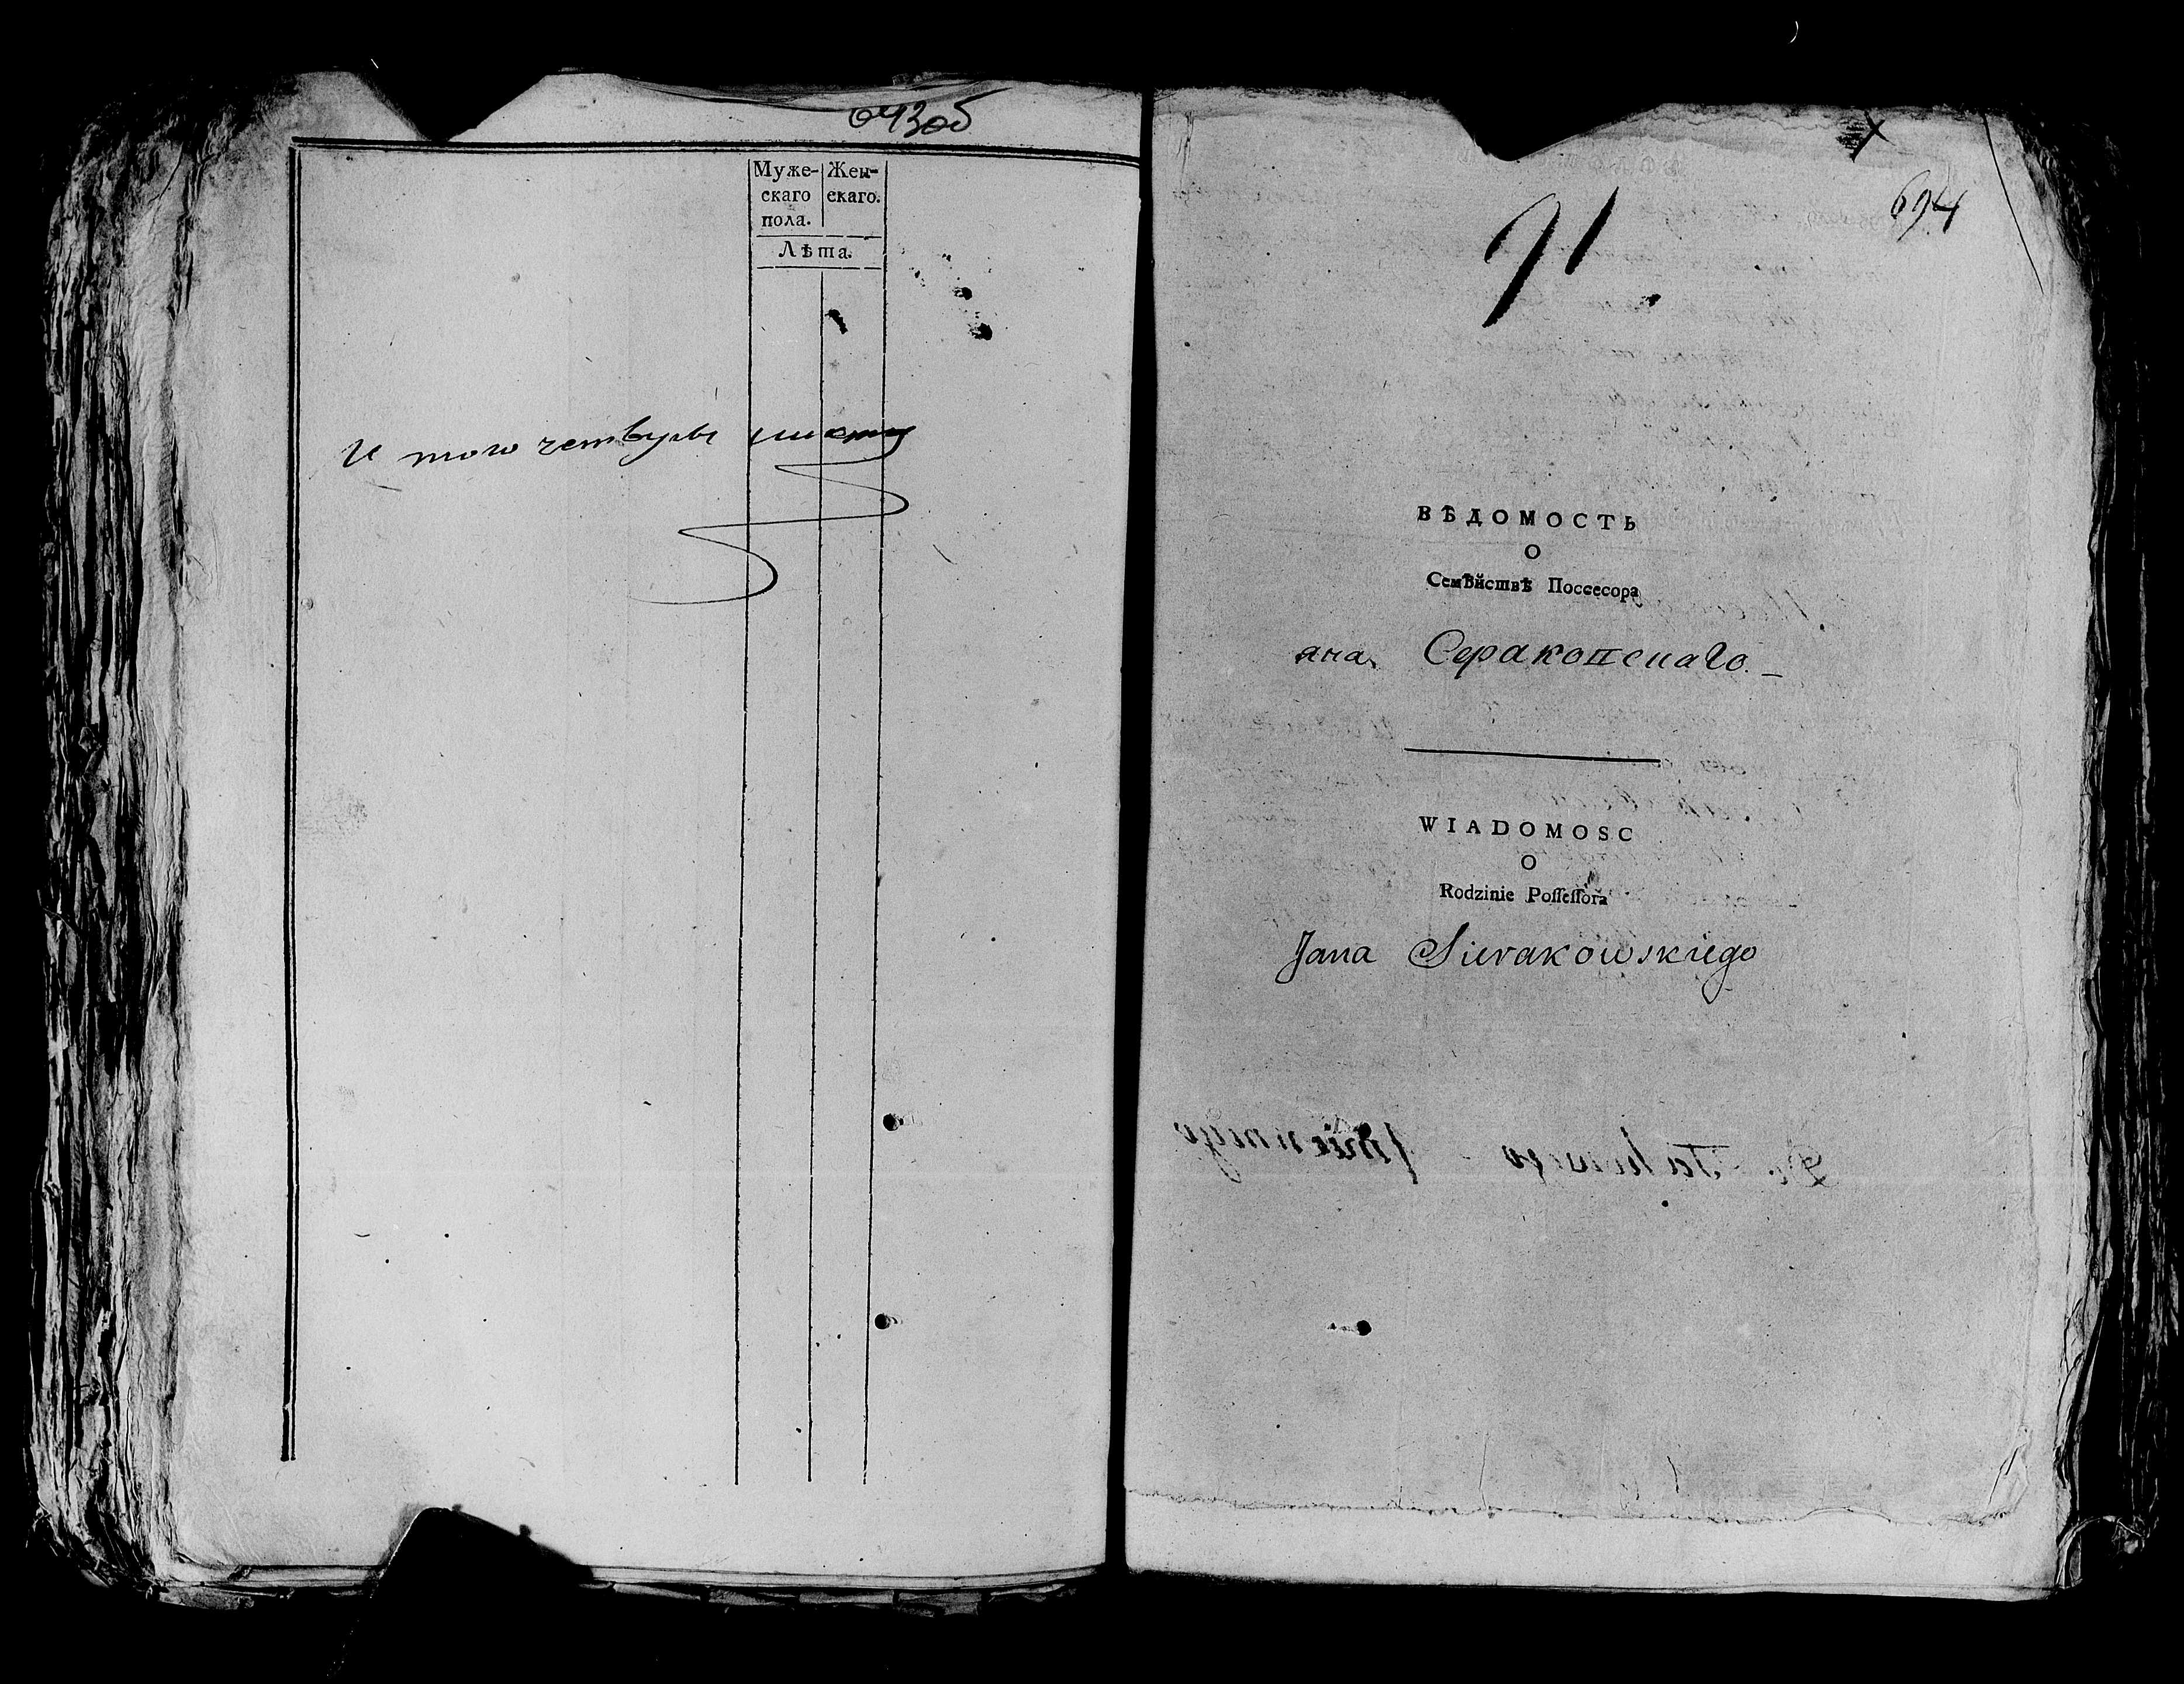 Муже-
скаго
пола.
Жен-
скаго.
Лѣта.
И того четвуры
91
694
ВѢДОМОСТЬ
О
Семѣйствѣ Поссесора
яна Сераковскаго.
WIADOMOSC
O
Rodzinie Poſſeſſora
Jana Sierakowskiego